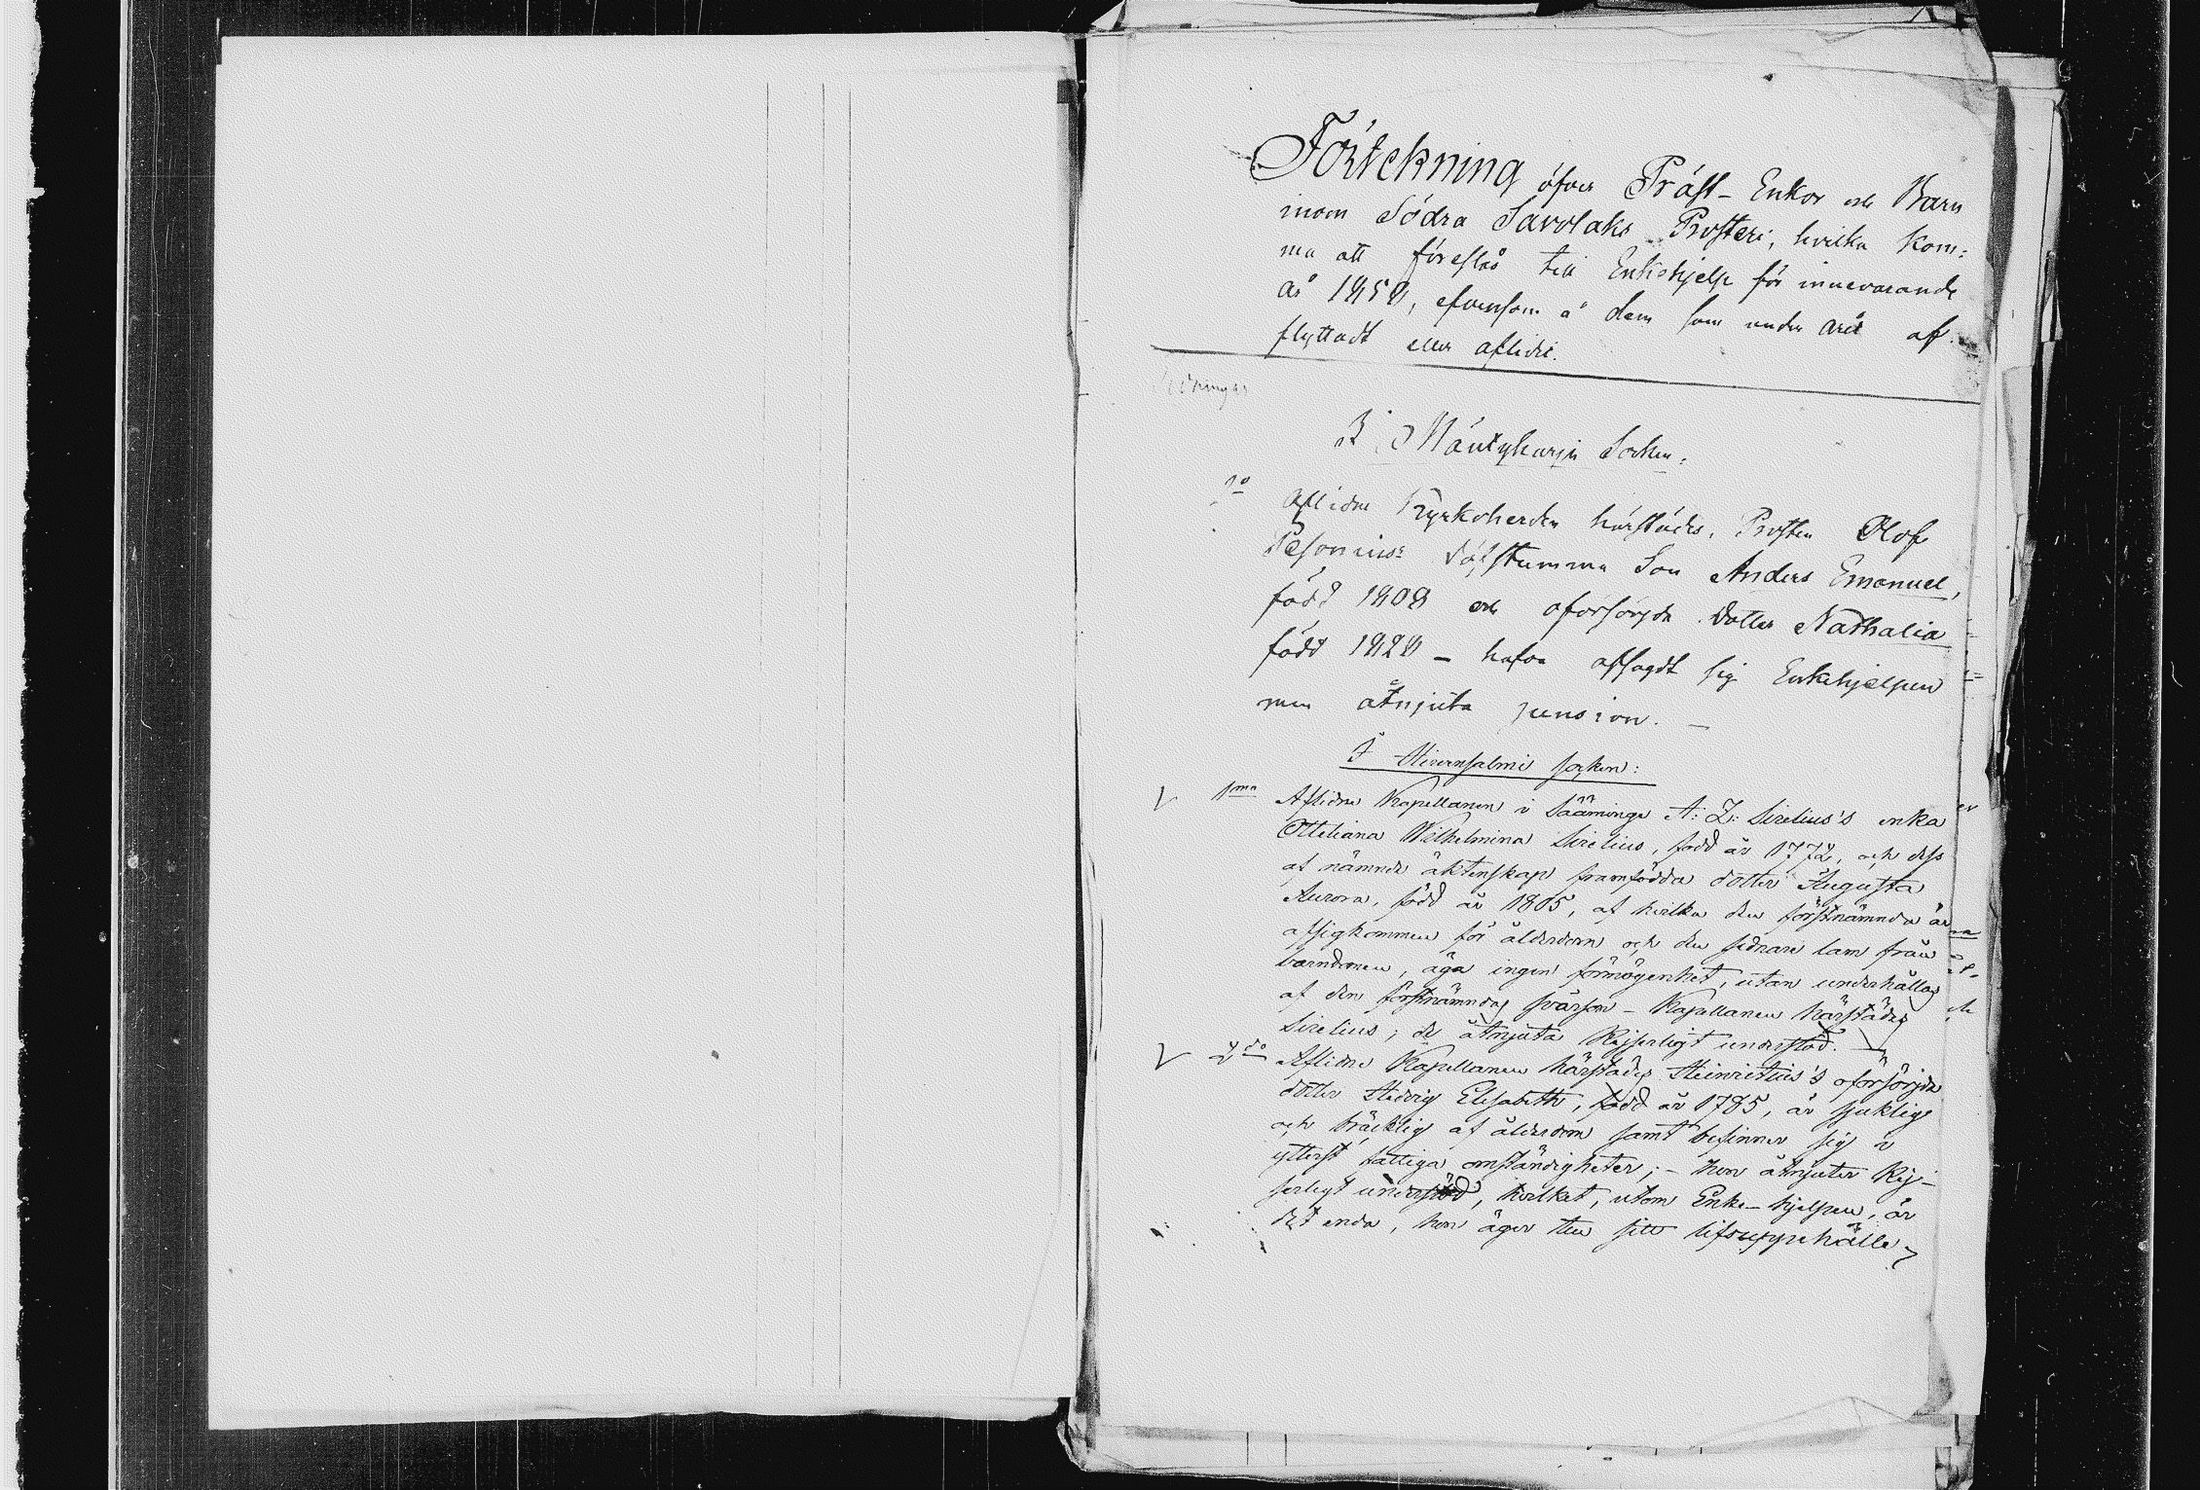 Förtekning öfver Präst-Enkor och Barn
inom Södra Savolaks Prosteri, hvilka kom:
ma att föreslås till Enkehjelp för innevarande
år 1858, äfvensom å dem som under året af
flyttadt eller aflidit.
I Mäntyharju Socken:
1o Aflidne Kyrkoherden härstädes, Prosten Olof
Pesonius: döfstumma Son Anders Emanuel,
född 1808 och oförsörjda dotter Nathalia
född 1828 - hafva afsagdt sig Enkehjelpen
men åtnjuta pension. -
I Hirvensalmi socken:
1mo Aflidne Kapellanen i Sääminge A: Z: Sirelius's enka
Ottiliana Wilhelmina Sirelius, född år 1772, och dess
af nämnde äktenskap framfödda dotter Augusta
Aurora, född år 1805, af hvilka den förstnämnda är
afsigkommen för ålderdom och den sednare lam från
barndomen, äga ingen förmögenhet, utan underhållas
af den förstnämndas svärson - Kapellanen härstädes
Sirelius; de åtnjuta Kejserligt understöd. -
2do Aflidne Kapellanen härstädes Heinricius's oförsörjda
dotter Hedvig Elisabeth, född år 1785, är sjuklig
och bräcklig af ålderdom samt befinner sig i
ytterst fattiga omständigheter; - hon åtnjuter Kej-
serligt understöd, hvilket, utom Enke-hjelpen, är
det enda, hon äger till sitt lifsuppehälle